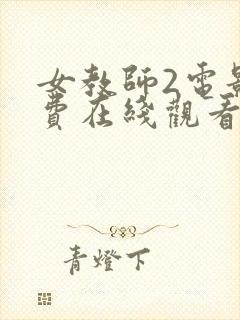 女教師2電影
費在綫觀看
青燈下